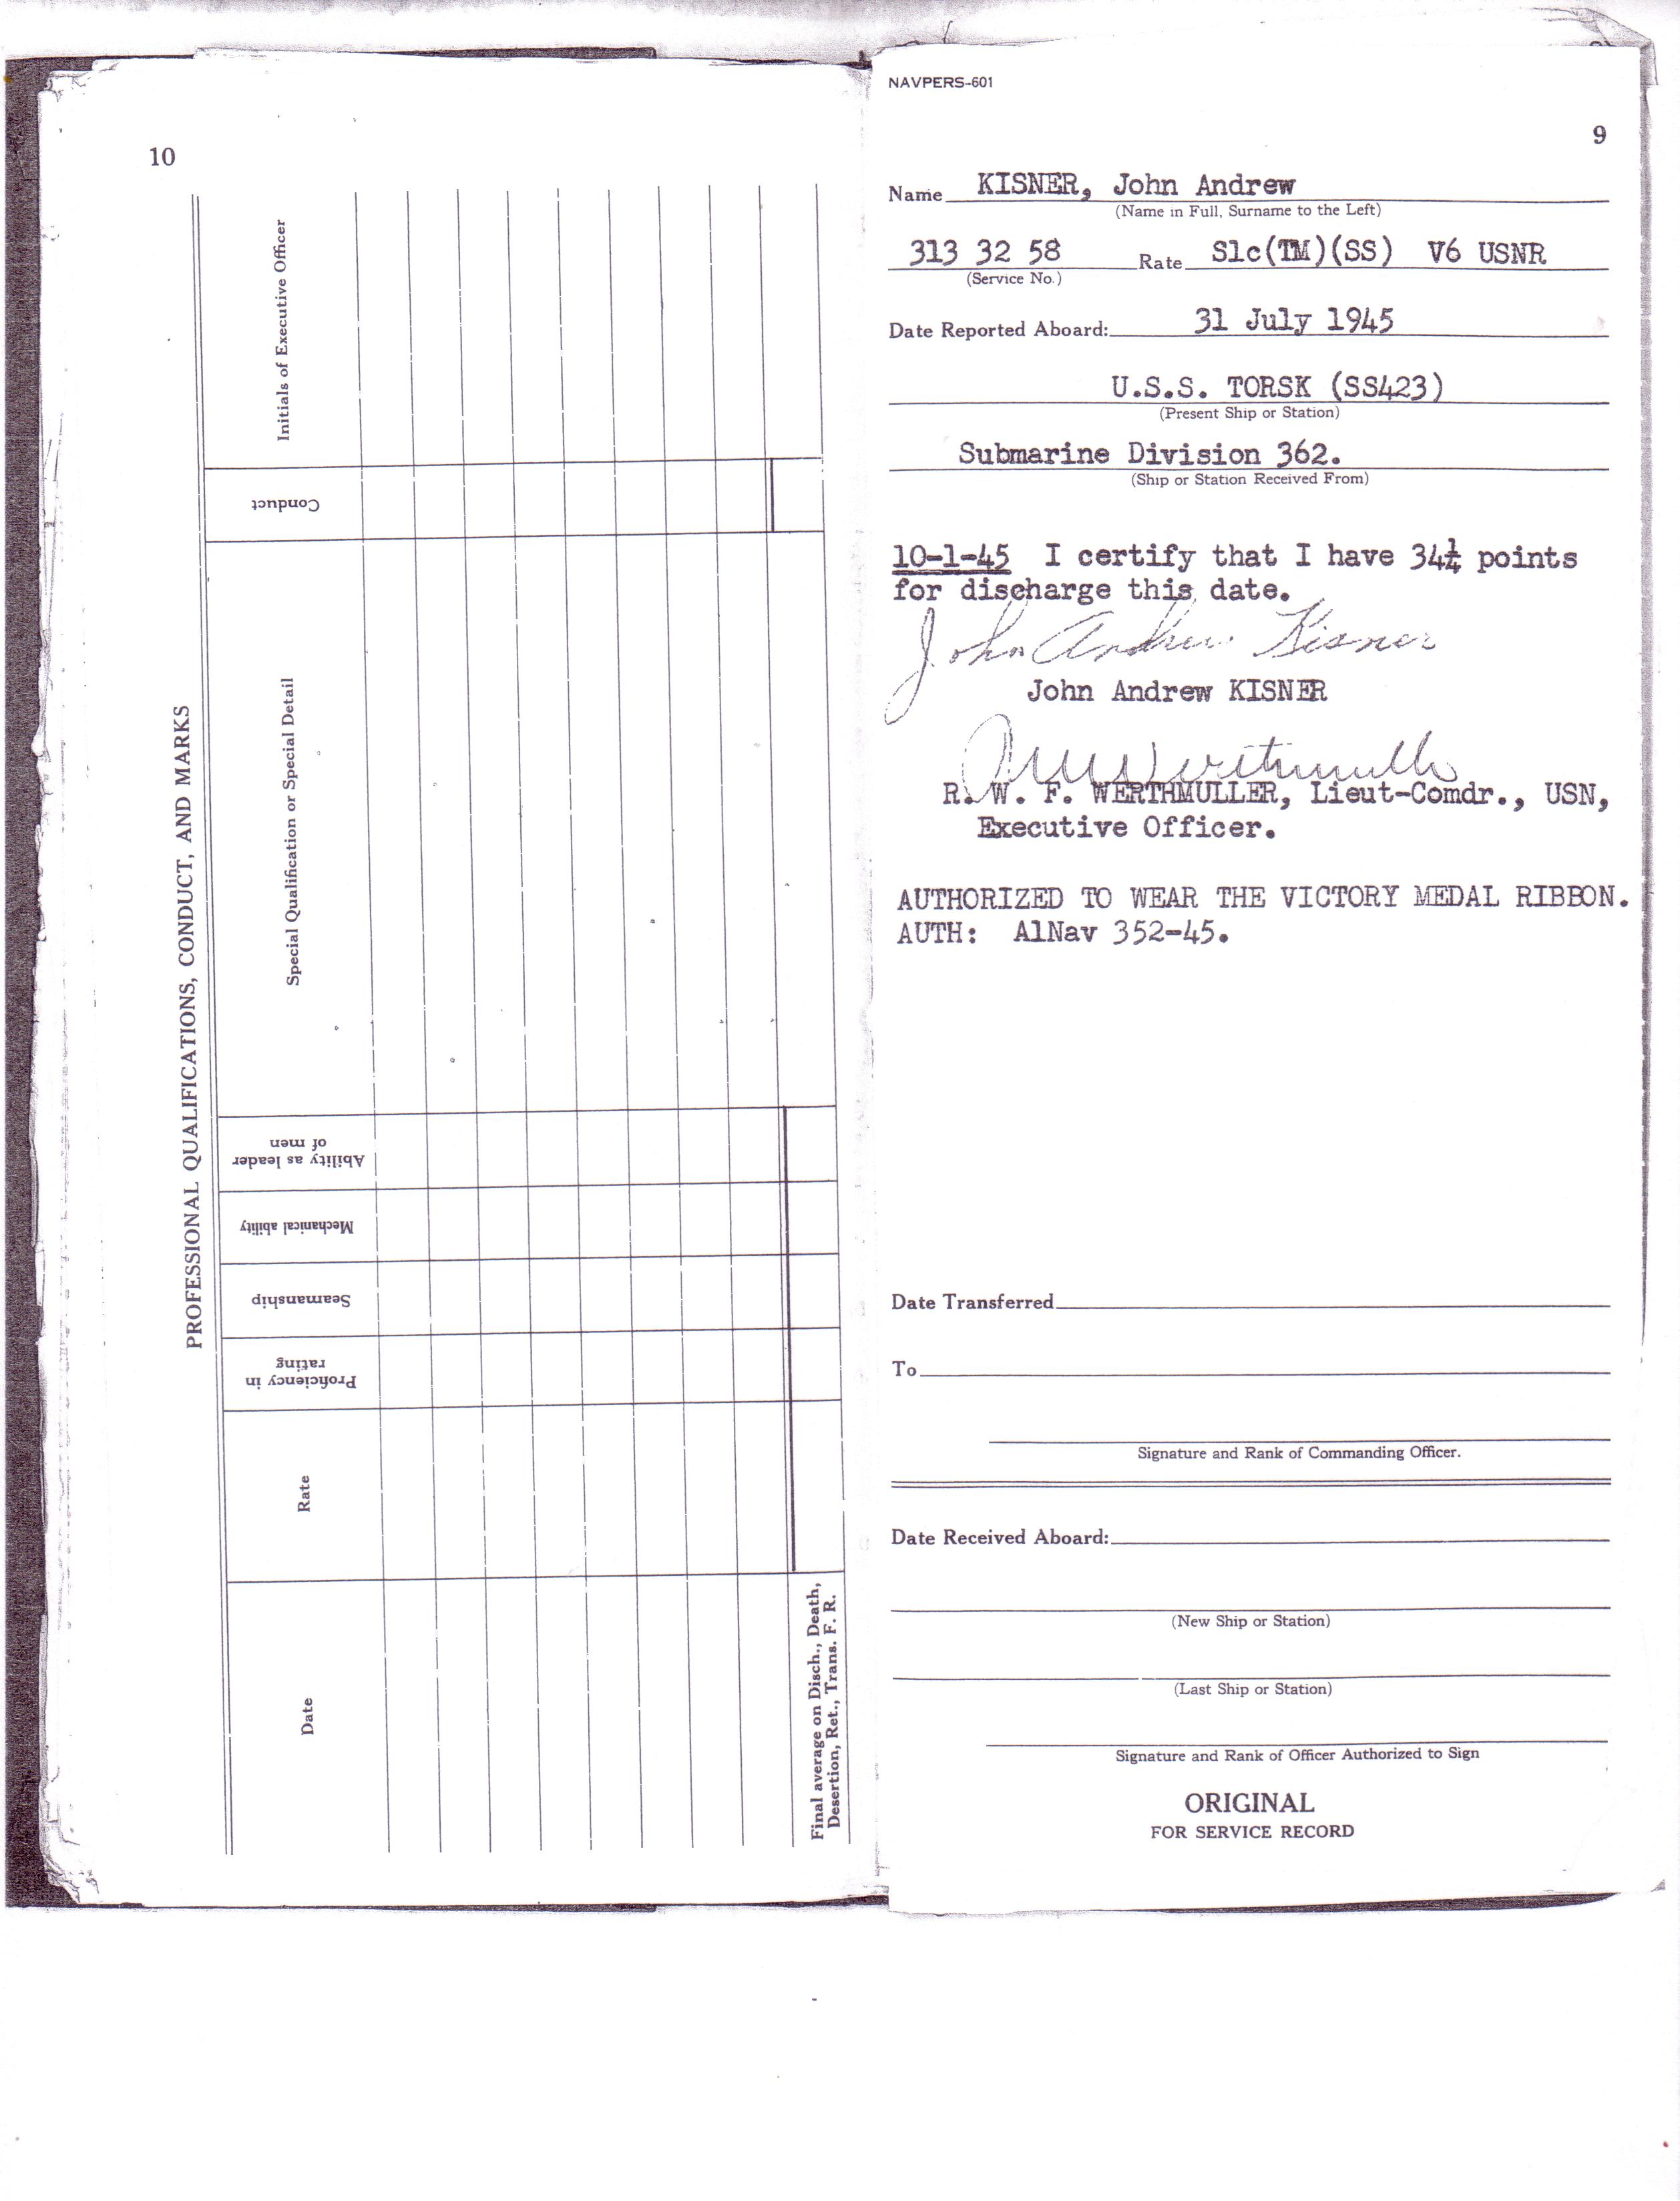 10
PROFESSIONAL QUALIFICATIONS, CONDUCT, AND MARKS
Date
Rate
Proficiency in
rating
Seamanship
Mechanical ability
Ability as leader
of men
Special Qualification or Special Detail
Conduct
Initials of Executive Officer
Final average on Disch., Death,
Desertion, Ret., Trans. F. R.
NAVPERS-601
9
Name KISNER, John Andrew
(Name in Full, Surname to the Left)
313 32 58 Rate S1c(TM)(SS) V6 USNR
(Service No.)
Date Reported Aboard: 31 July 1945
U.S.S. TORSK (SS423)
(Present Ship or Station)
Submarine Division 362.
(Ship or Station Received From)
10-1-45 I certify that I have 34¼ points
for discharge this date.
John Andrew Kisner
John Andrew KISNER
R. W. F. WERTHMULLER, Lieut-Comdr., USN,
Executive Officer.
AUTHORIZED TO WEAR THE VICTORY MEDAL RIBBON.
AUTH: AlNav 352-45.
Date Transferred
To
Signature and Rank of Commanding Officer.
Date Received Aboard:
(New Ship or Station)
(Last Ship or Station)
Signature and Rank of Officer Authorized to Sign
ORIGINAL
FOR SERVICE RECORD